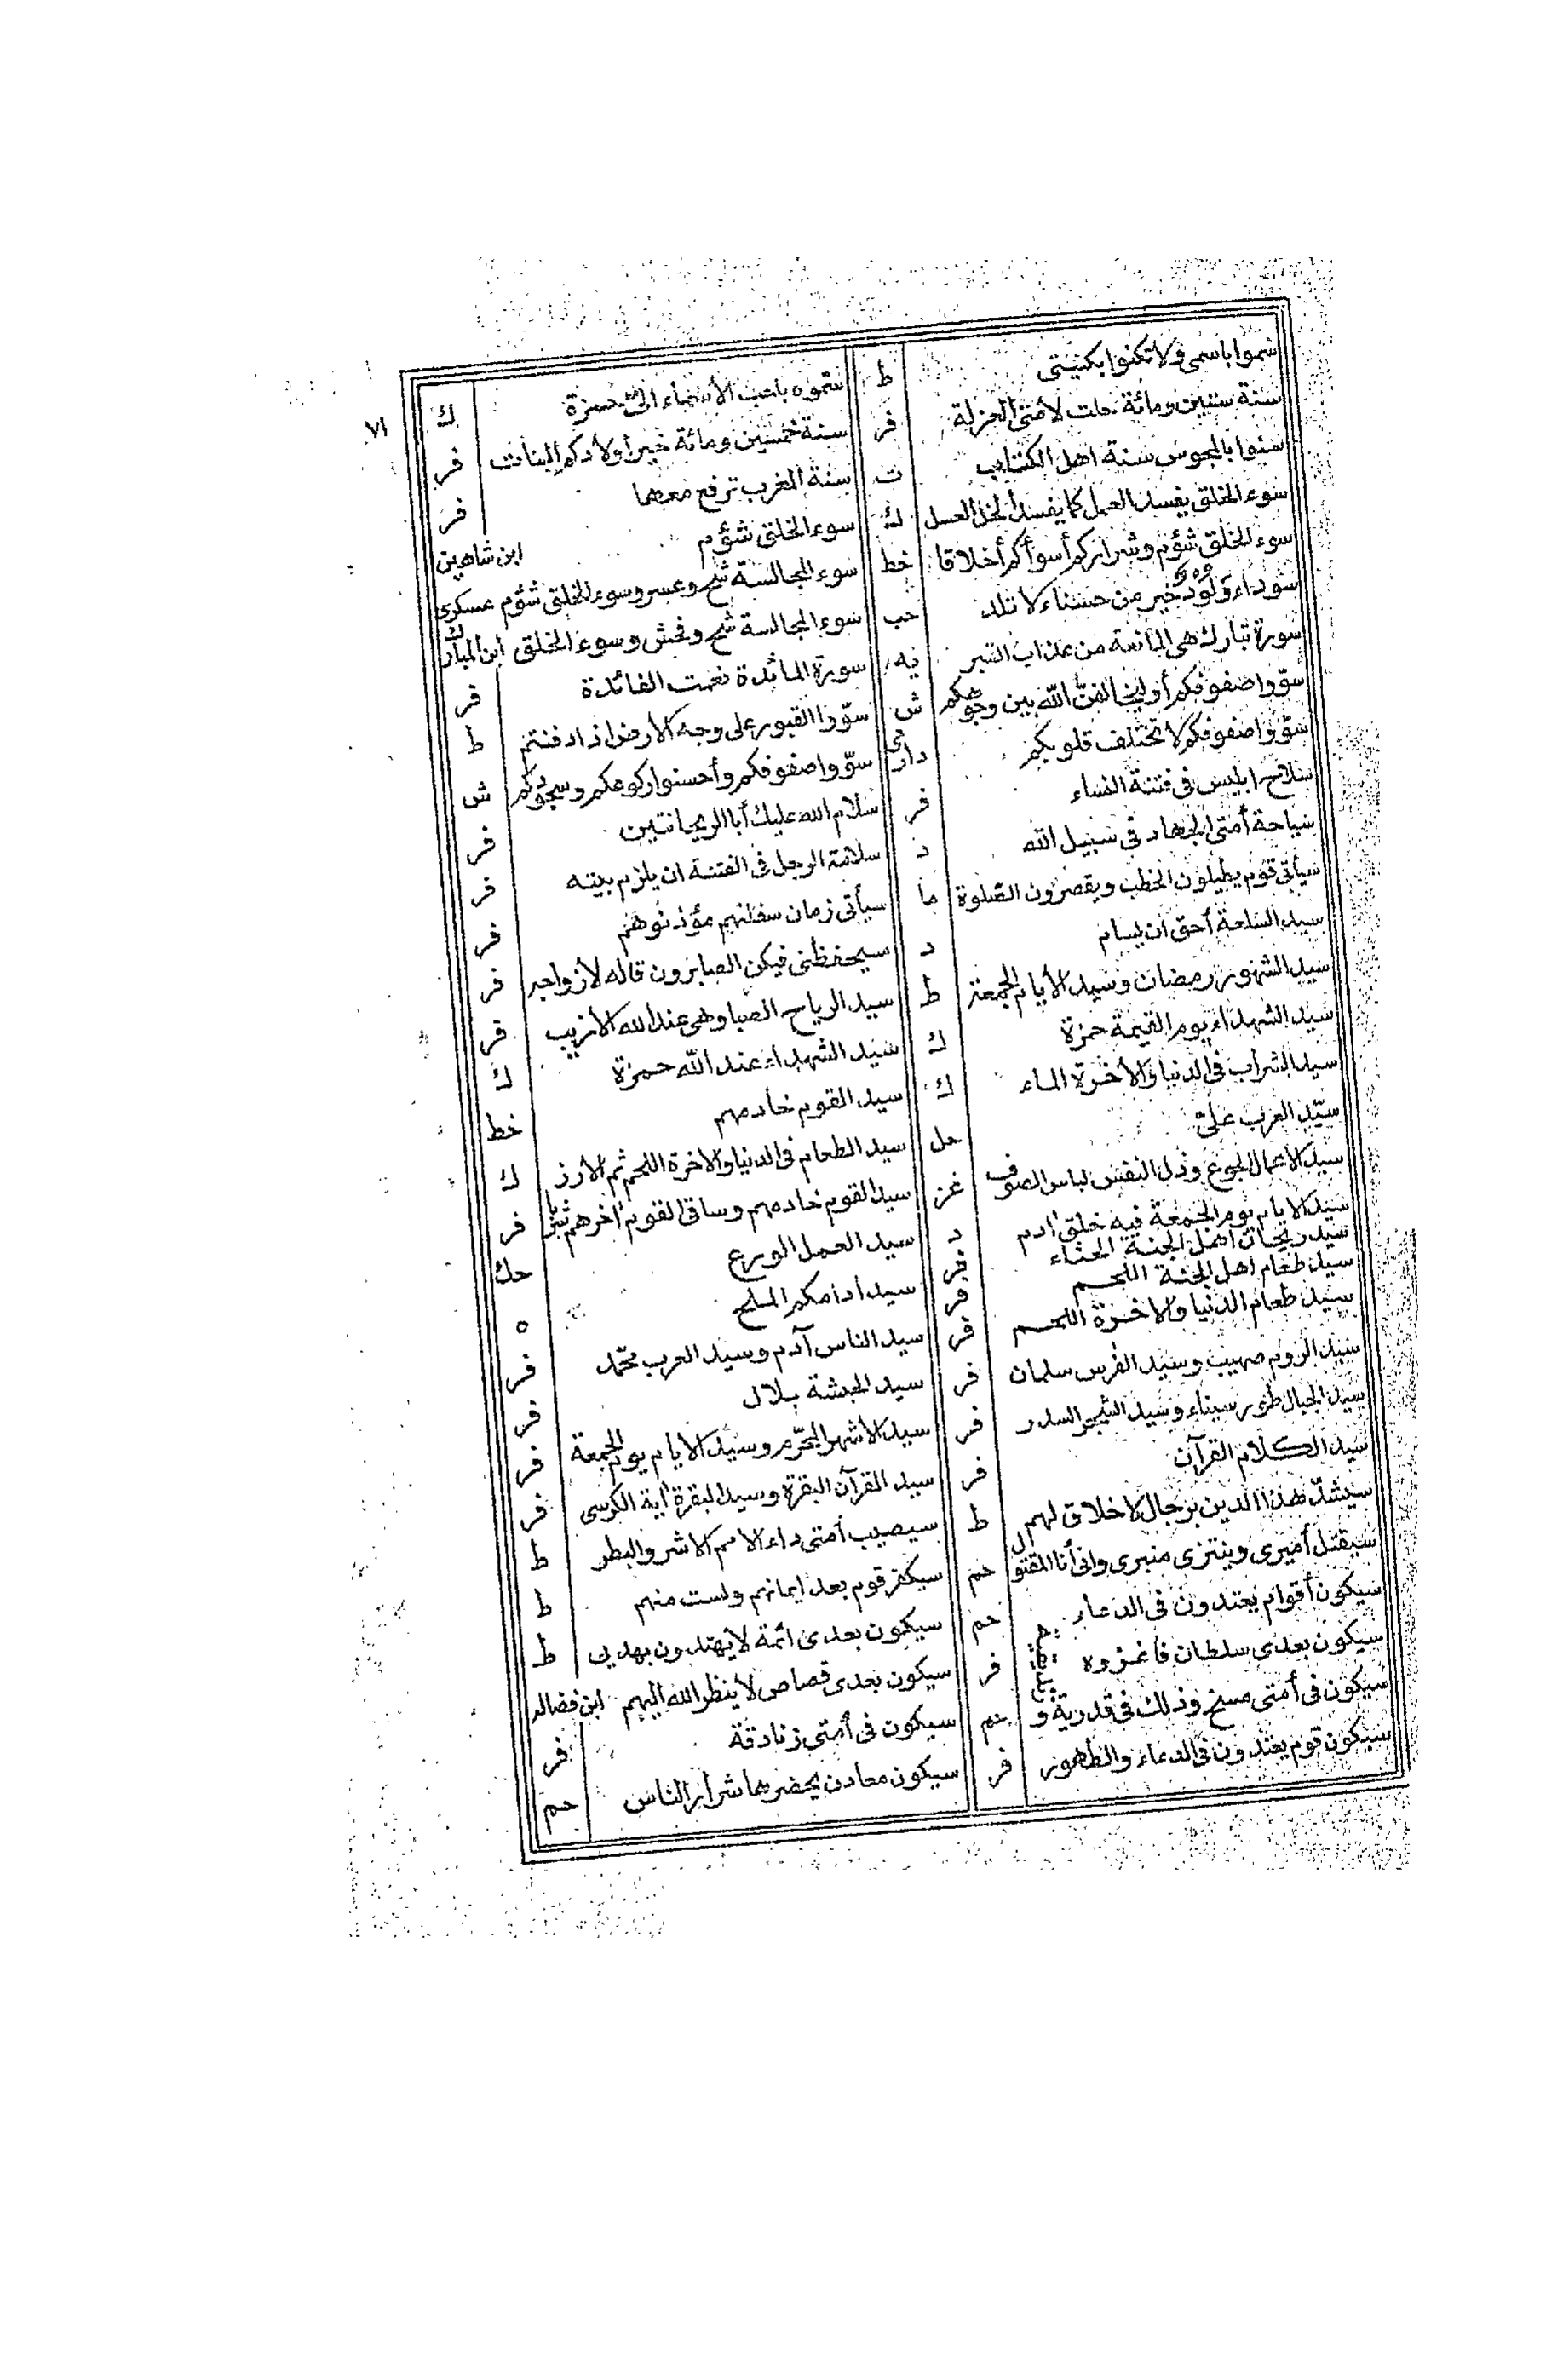 ٧١
سموا باسمى ولا تكنوا بكنيتى ط
سنة ستين ومائة حلت لأمتى العزلة فر
سنوا بالمجوس سنة اهل الكتاب ت
سوء الخلق يفسد العمل كما يفسد الخل العسل ك
سوء الخلق شؤم وشراركم أسوأكم أخلاقا خط
سوداء ولود خير من حسناء لا تلد حب
سورة تبارك هى المانعة من عذاب القبر يه
سوّوا صفوفكم أو ليخالفنّ الله بين وجوهكم ش
سوّوا صفوفكم لا تختلف قلوبكم دارمى
سلاح ابليس فى فتنة النساء فر
سياحة أمتى الجهاد فى سبيل الله د
سيأتى قوم يطيلون الخطب ويقصرون الصلوة ما
سيد السلعة أحق ان يسام د
سيد الشهور رمضان وسيد الأيام الجمعة ط
سيد الشهداء يوم القيمة حمزة ك
سيد الشراب فى الدنيا والأخرة الماء ك
سيّد العرب علىّ حل
سيد الاعمال الجوع وذل النفس لباس الصوف غز
سيد الايام يوم الجمعة فيه خلق ادم د
سيد ريحان اهل الجنة الحناء فر
سيد طعام اهل الجنة اللحم فر
سيد طعام الدنيا والاخرة اللحم فر
سيد الروم صهيب وسيد الفرس سلمان فر
سيد الجبال طور سيناء وسيد الشجر السدر فر
سيد الكلام القرآن فر
سيشدّ هذا الدين برجال لا خلاق لهم ط
سيقتل أميرى وينتزى منبرى وانى أنا المقتول حم
سيكون أقوام يعتدون فى الدعاء حم
سيكون بعدى سلطان فاغزوه فر
سيكون فى أمتى مسخ وذلك فى قدرية و حم
سيكون قوم يعتدون فى الدعاء والطهور فر
سموه باحب الأسماء الىّ حمزة ك
سنة خمسين ومائة خير أولادكم البنات فر
سنة المغرب ترفع معهما فر
سوء الخلق شؤم ابن شاهين
سوء المجالسة شح وعسر وسوء الخلق شؤم عسكرى
سوء المجالسة شح وفحش وسوء الخلق ابن المبارك
سورة المائدة نعمت الفائدة فر
سوّوا القبور على وجه الأرض اذا دفنتم ط
سوّوا صفوفكم وأحسنوا ركوعكم وسجودكم ش
سلام الله عليك أبا الريحانتين فر
سلامة الرجل فى الفتنة ان يلزم بيته فر
سيأتى زمان سفلتهم مؤذنوهم فر
سيحفظنى فيكن الصابرون قاله لأزواجه فر
سيد الرياح الصبا وهى عند الله الأزيب فر
سيد الشهداء عند الله حمزة ك
سيد القوم خادمهم خط
سيد الطعام فى الدنيا والاخرة اللحم ثم الارز ك
سيد القوم خادمهم وساقى القوم اخرهم شربا فر
سيد العمل الورع حك
سيد ادامكم الملح ه
سيد الناس آدم وسيد العرب محمّد فر
سيد الحبشة بلال فر
سيد الأشهر المحرّم وسيد الايام يوم الجمعة فر
سيد القرآن البقرة وسيد البقرة اية الكرسى فر
سيصيب أمتى داء الامم الاشر والبطر ط
سيكفر قوم بعد ايمانهم ولست منهم ط
سيكون بعدى ائمة لا يهتدون بهديى ط
سيكون بعدى قصاص لا ينظر الله اليهم ابن فضاله
سيكون فى أمتى زنادقة فر
سيكون معادن يحضرها شرار الناس حم